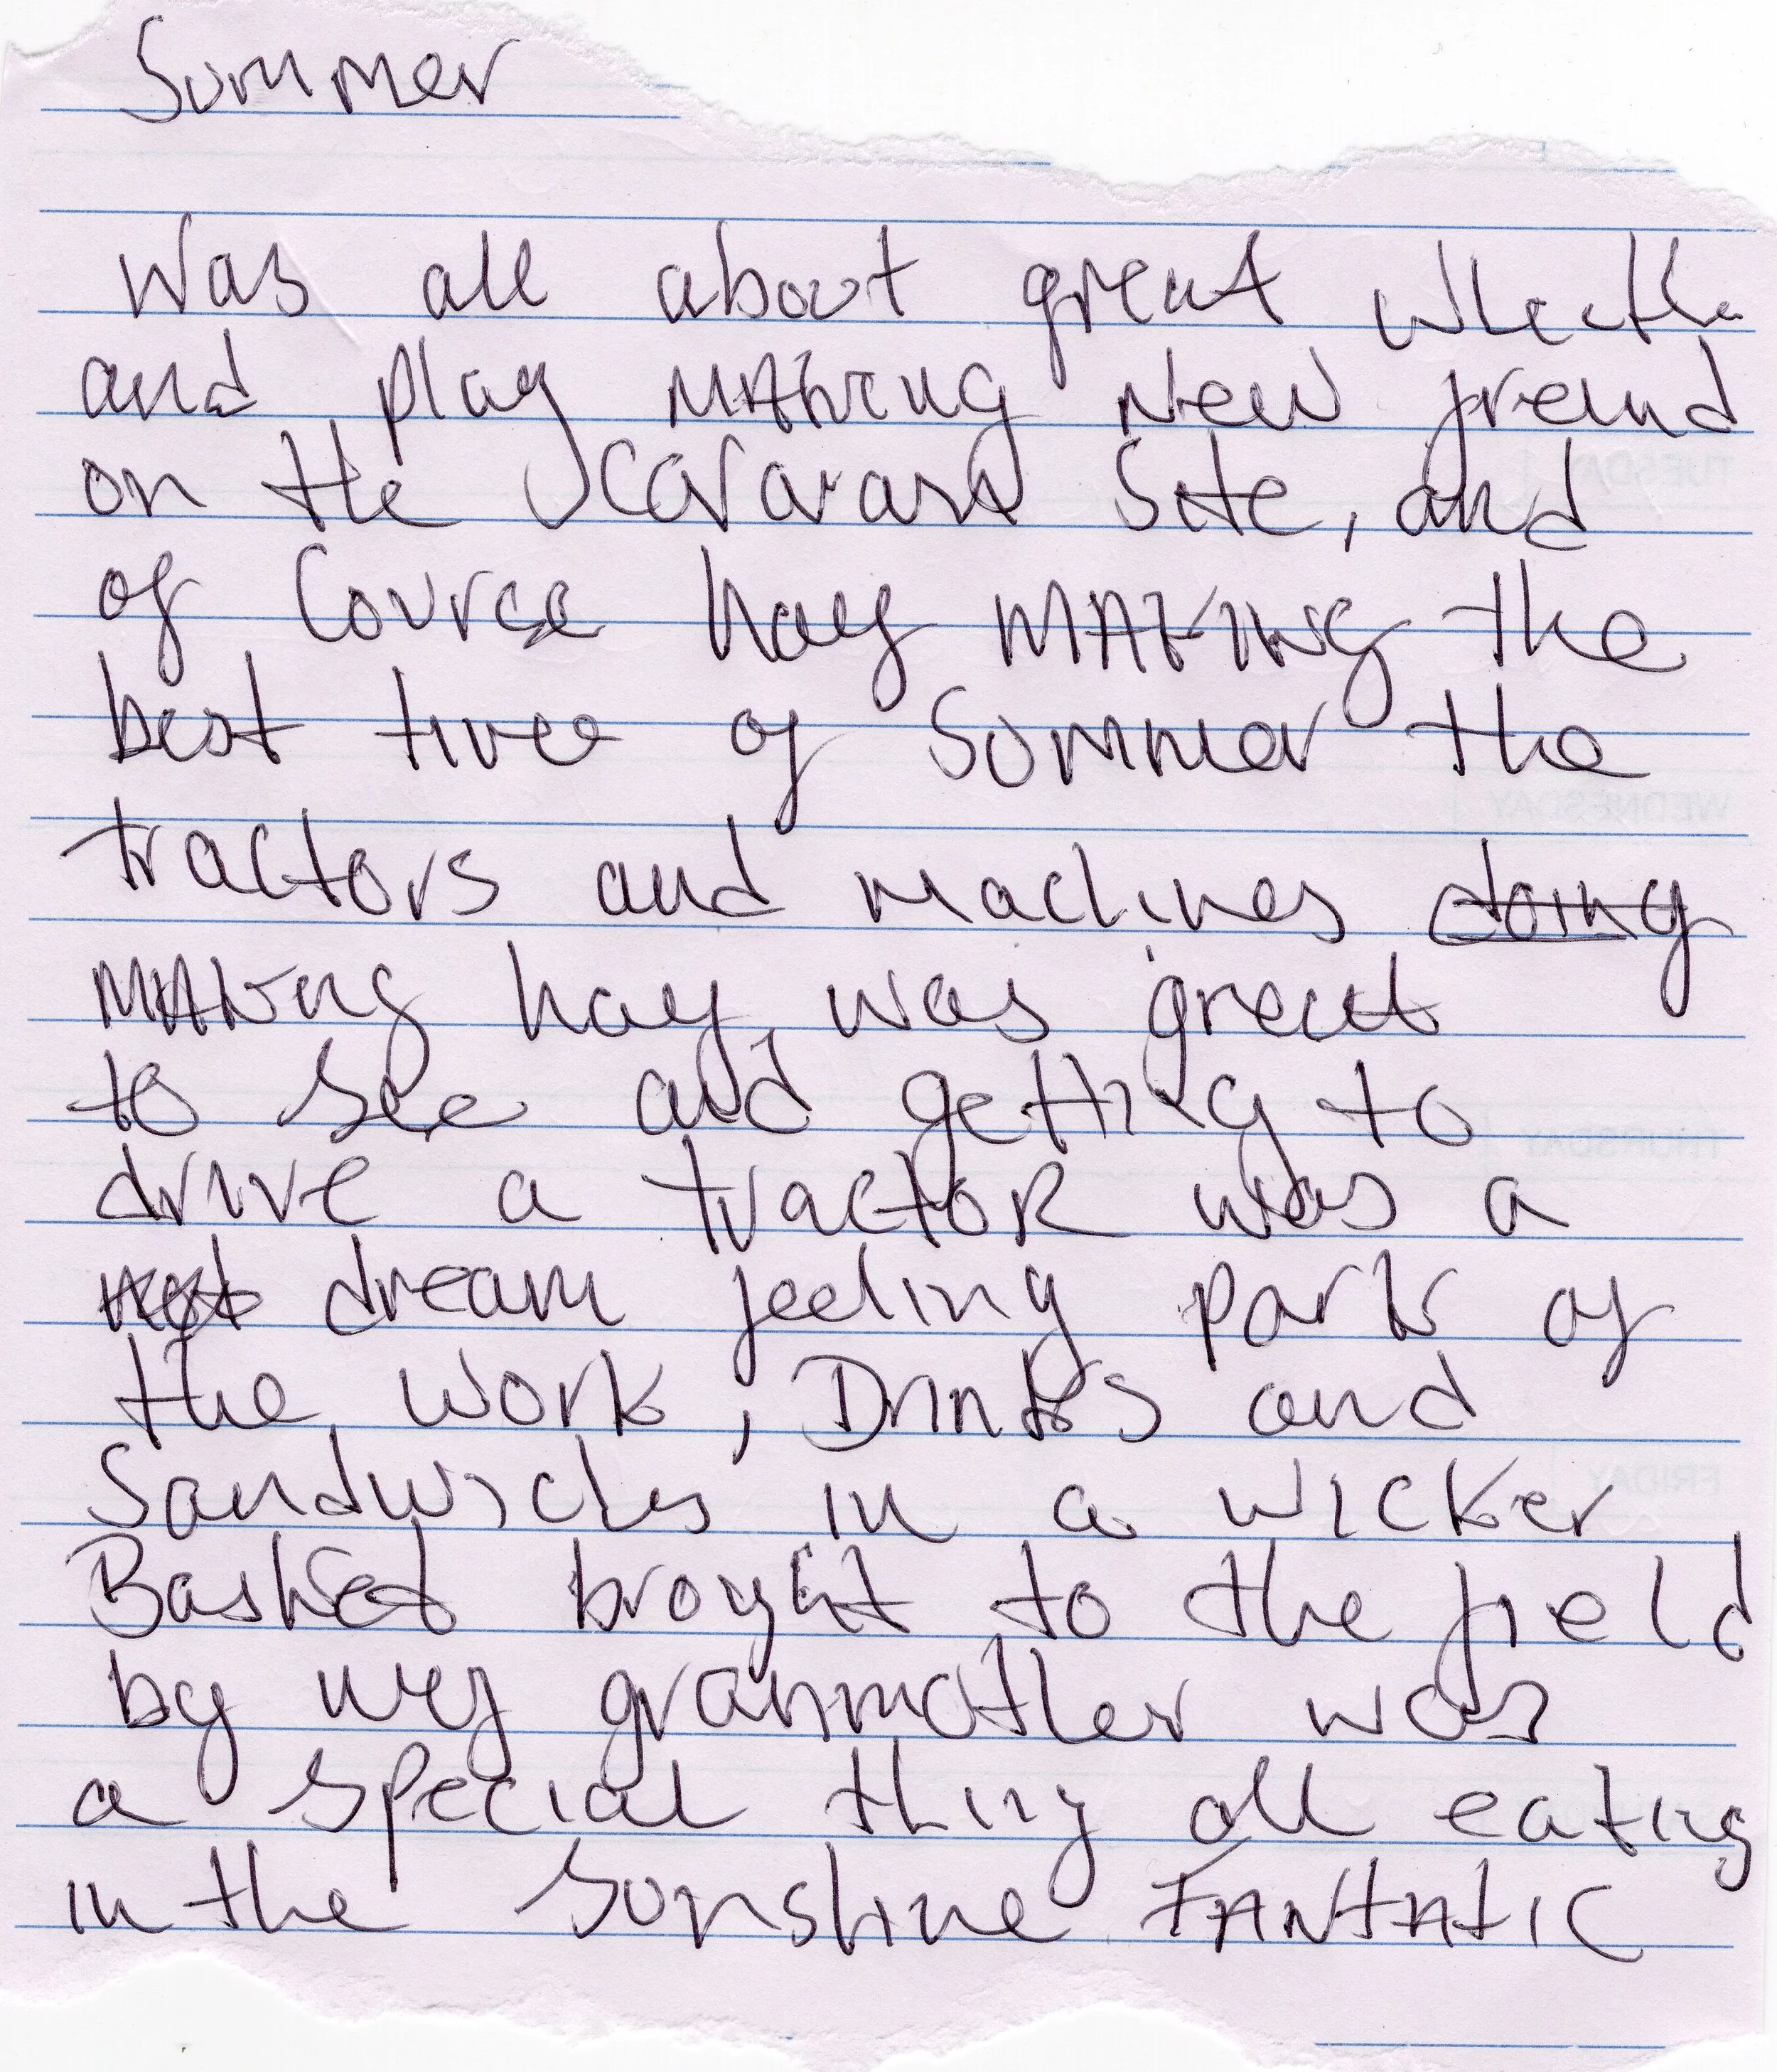 Summer
Was all about great wheathe
and play MAking New freind
on the caravan Site, and
of Course hay MAKINg the
best time of Summer the
tractors and machines doing
MAking hay, was great
to see and getting to
drive a tractoR was a
dream feeling part of
the work, Drinks and
Sandwiches in a wicker
Basket broyght to the field
by my granmother was
a special thing all eating
in the Sunshine FANTAtIC
TUESDAY
WEDNESDAY
THURSDAY
FRIDAY